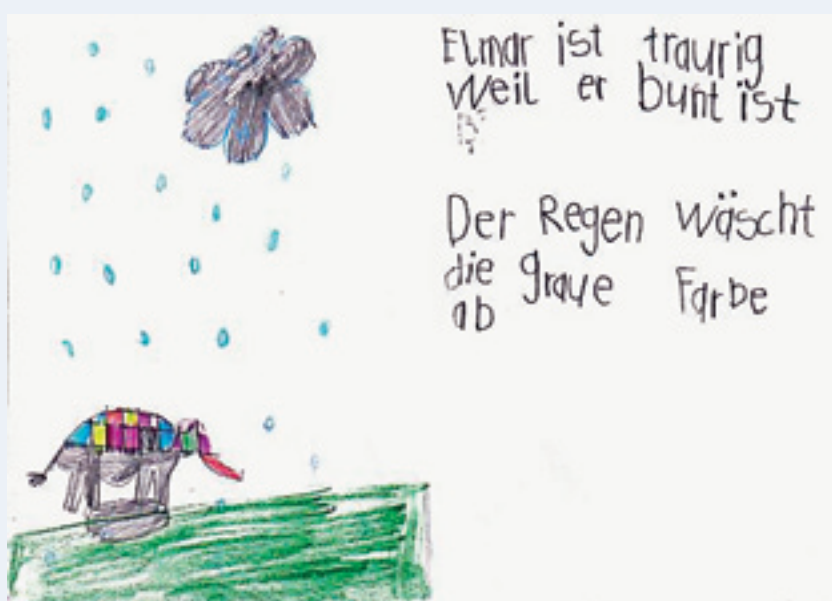 Elmar ist traurig
weil er bunt ist
Der Regen wäscht
die graue Farbe
ab